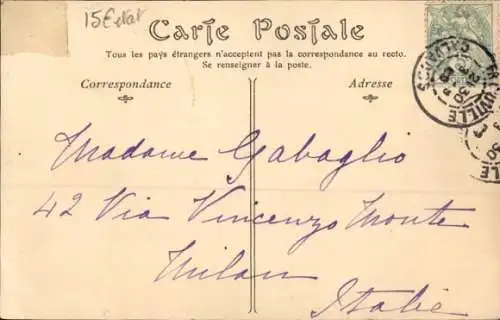 15€ etat
Carte Postale
Tous les pays étrangers n'acceptent pas la correspondance au recto.
Se renseigner à la poste.
Correspondance
Adresse
CALVADOS
TROUVILLE
30
Madame Gabaglio
42 Via Vincenzo Monte
Milan
Italie